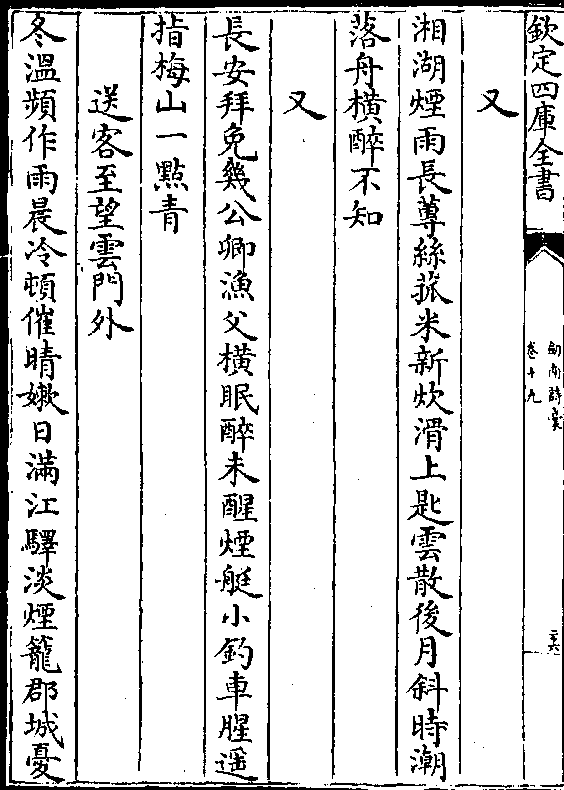 欽定四庫全書
劍南詩稾
卷十九
二十六
又
湘湖煙雨長蓴絲菰米新炊滑上匙雲散後月斜時潮
落舟橫醉不知
又
長安拜免幾公卿漁父橫眠醉未醒煙艇小釣車腥遥
指梅山一點青
送客至望雲門外
冬溫頻作雨晨冷頓催晴嫩日滿江驛淡煙籠郡城憂